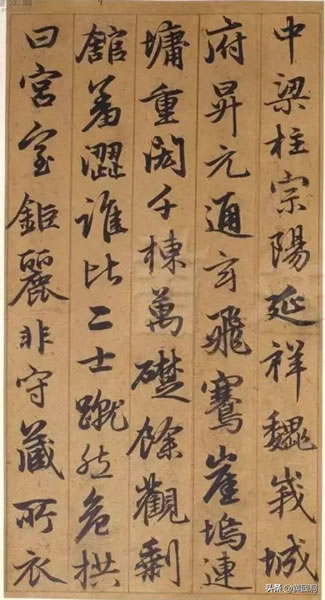 中梁柱宗陽延祥巍峩城
府昇元通玄飛騫崖塢連
墉重閎千棟萬礎餘觀剩
舘羞澀誰比二士蹴然危拱
曰宮室鉅麗非守藏所衣
头条